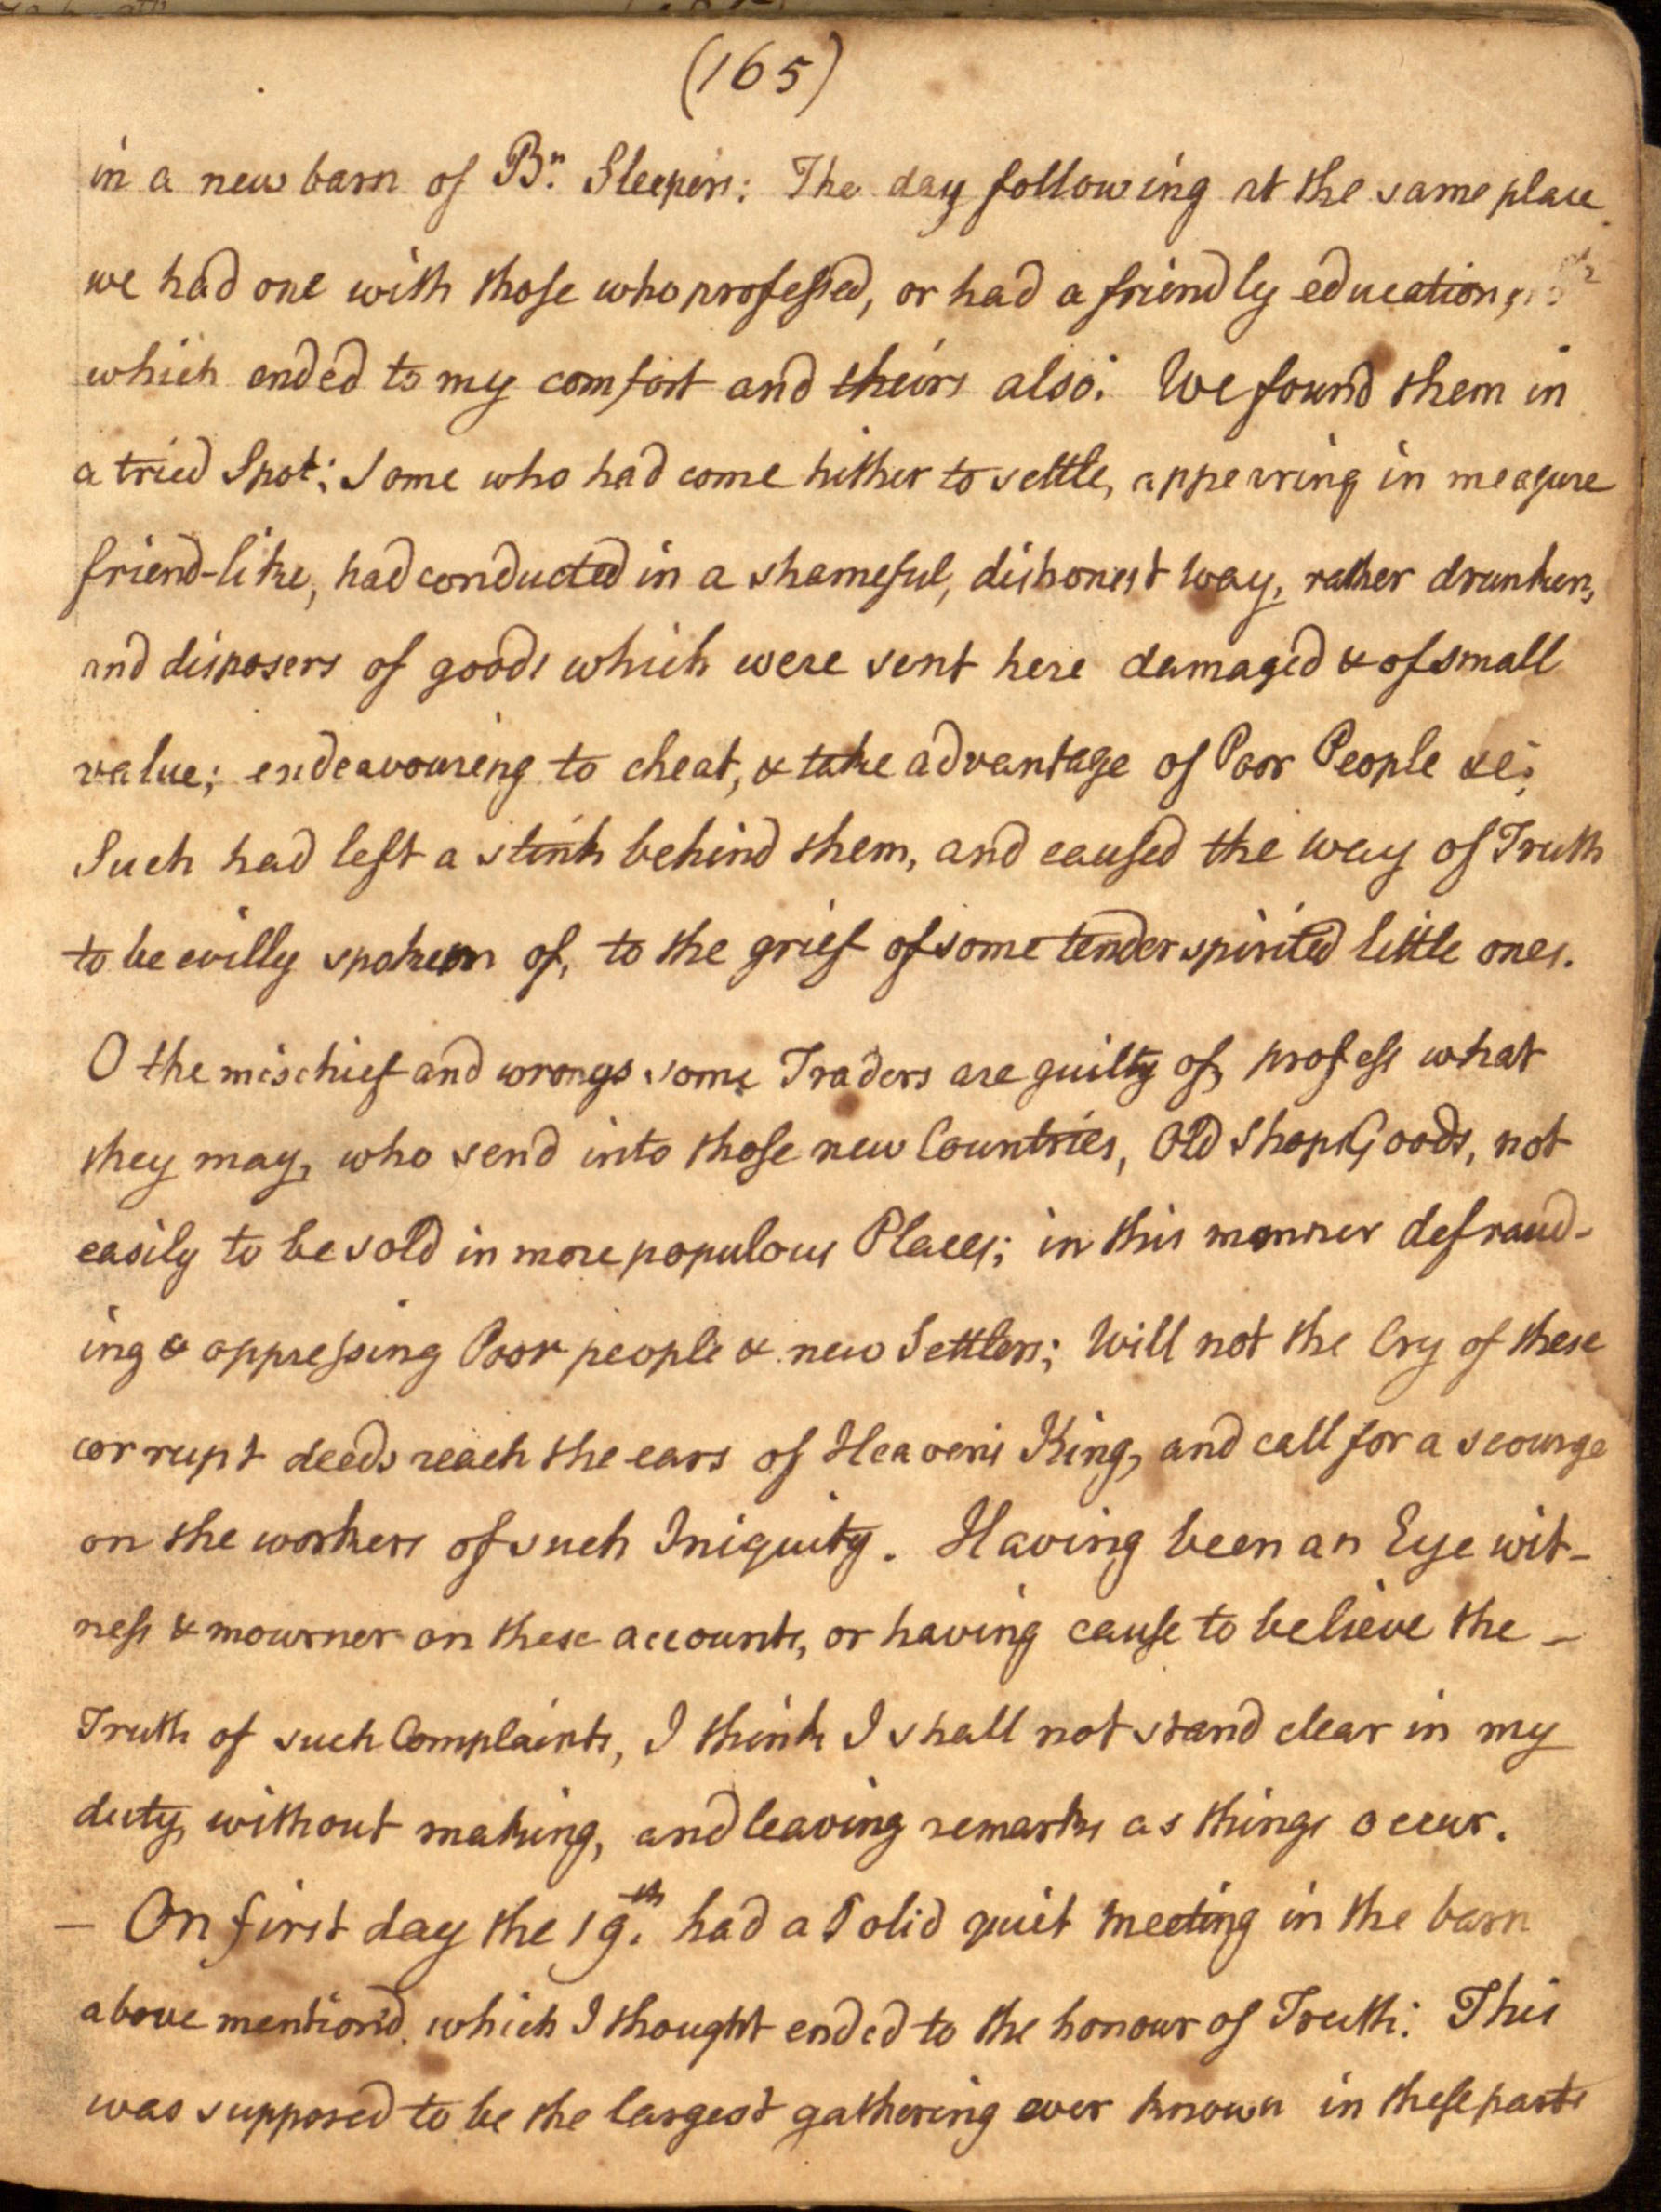 (165)
in a new barn of Bn. Sleepers: The day following at the same place
we had one with those who professed, or had a friendly education,
which ended to my comfort and theirs also: We found them in
a tried Spot: Some who had come hither to settle, appearing in measure
friend-like, had conducted in a shameful, dishonest way, rather drunken,
and disposers of goods which were sent here damaged & of small
value; endeavouring to cheat, & take advantage of Poor People &c;
Such had left a stink behind them, and caused the way of Truth
to be evilly spoken of, to the grief of some tender spirited little ones.
O the mischief and wrongs some Traders are guilty of, profess what
they may, who send into those new Countries, Old Shop Goods, not
easily to be sold in more populous Places; in this manner defraud-
ing & oppressing Poor people & new Settlers; Will not the Cry of these
corrupt deeds reach the ears of Heavens King, and call for a scourge
on the workers of such Iniquity. Having been an Eye wit-
ness & mourner on these accounts, or having cause to believe the -
Truth of such Complaints, I think I shall not stand clear in my
duty, without making, and leaving remarks as things occur.
- On first day the 19.th had a Solid quiet meeting in the barn
above mention'd. which I thought ended to the honour of Truth: This
was supposed to be the largest gathering ever known in these parts